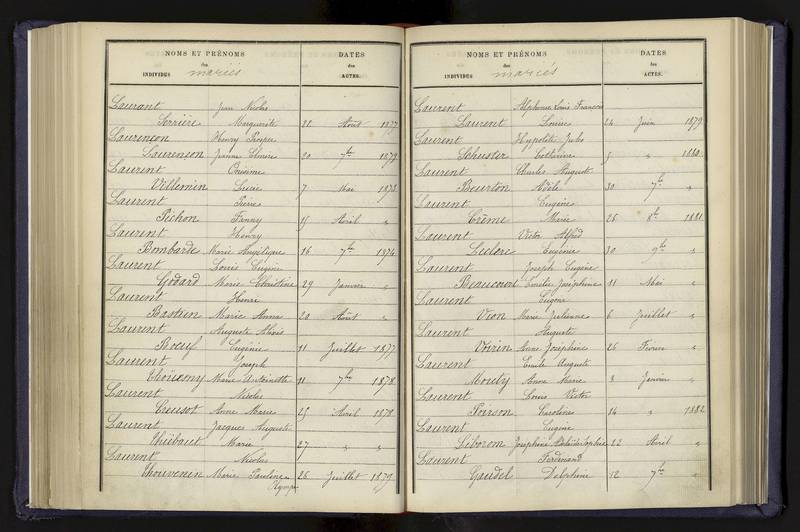 NOMS ET PRÉNOMS DATES
des des
INDIVIDUS mariés ACTES.
Laurant Jean Nicolas
Serrière Marguerite 28 Août 1877
Laurençon Henry Prosper
Laurençon Jeanne 20 7bre 1879
Laurent Onésime
Villemin Lucie 7 Mai 1873
Laurent Pierre
Pichon Fanny 15 Avril "
Laurent Henry
Bombarde Marie Angélique 16 7bre 1874
Laurent Louis Eugène
Godard Marie Christine 29 Janvier "
Laurent Henri
Bastien Marie Anna 20 Août "
Laurent Auguste Alexis
Boeuf Eugénie 11 Juillet 1877
Laurent Joseph
Marie Antoinette 11 7bre 1878
Laurent Nicolas
Creusot Anne Marie 25 Avril 1878
Laurent Jacques Auguste
Thiébaut Marie 27 " "
Laurent Nicolas
Thouvenin Marie Pauline 26 Juillet 1879
NOMS ET PRÉNOMS DATES
des des
INDIVIDUS mariés ACTES.
Laurent Alphonse Louis François
Laurent Louise 24 Juin 1879
Laurent Hyppolite Jules
Schuster Catherine 5 " 1880
Laurent Charles Auguste
Bourton Adèle 30 7bre "
Laurent Eugène
Crême Marie 28 8bre 1881
Laurent Victor Alfred
Leclerc Eugénie 30 9bre "
Laurent Joseph Eugène
Beaucourt Emélie Joséphine 11 Mai "
Laurent Eugène
Vion Marie Julienne 6 Juillet "
Laurent Auguste
Voirin Anne Joséphine 26 Février "
Laurent Emile Auguste
Mouty Anne Marie 8 Janvier "
Laurent Louis Victor
Poirson Caroline 14 " 1882
Laurent Eugène
Joséphine Sophie 22 Avril "
Laurent Ferdinand
Gaudel Delphine 12 7bre "